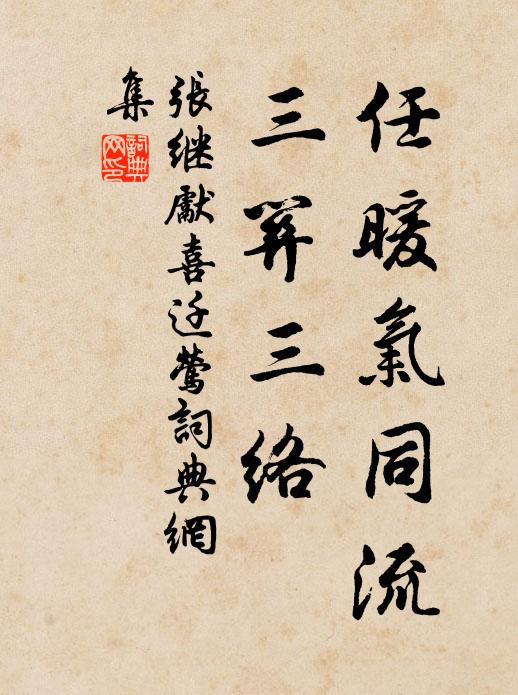 任暖氣同流
三三絡
張继獻喜迁鶯詞典網
集
詞典网印